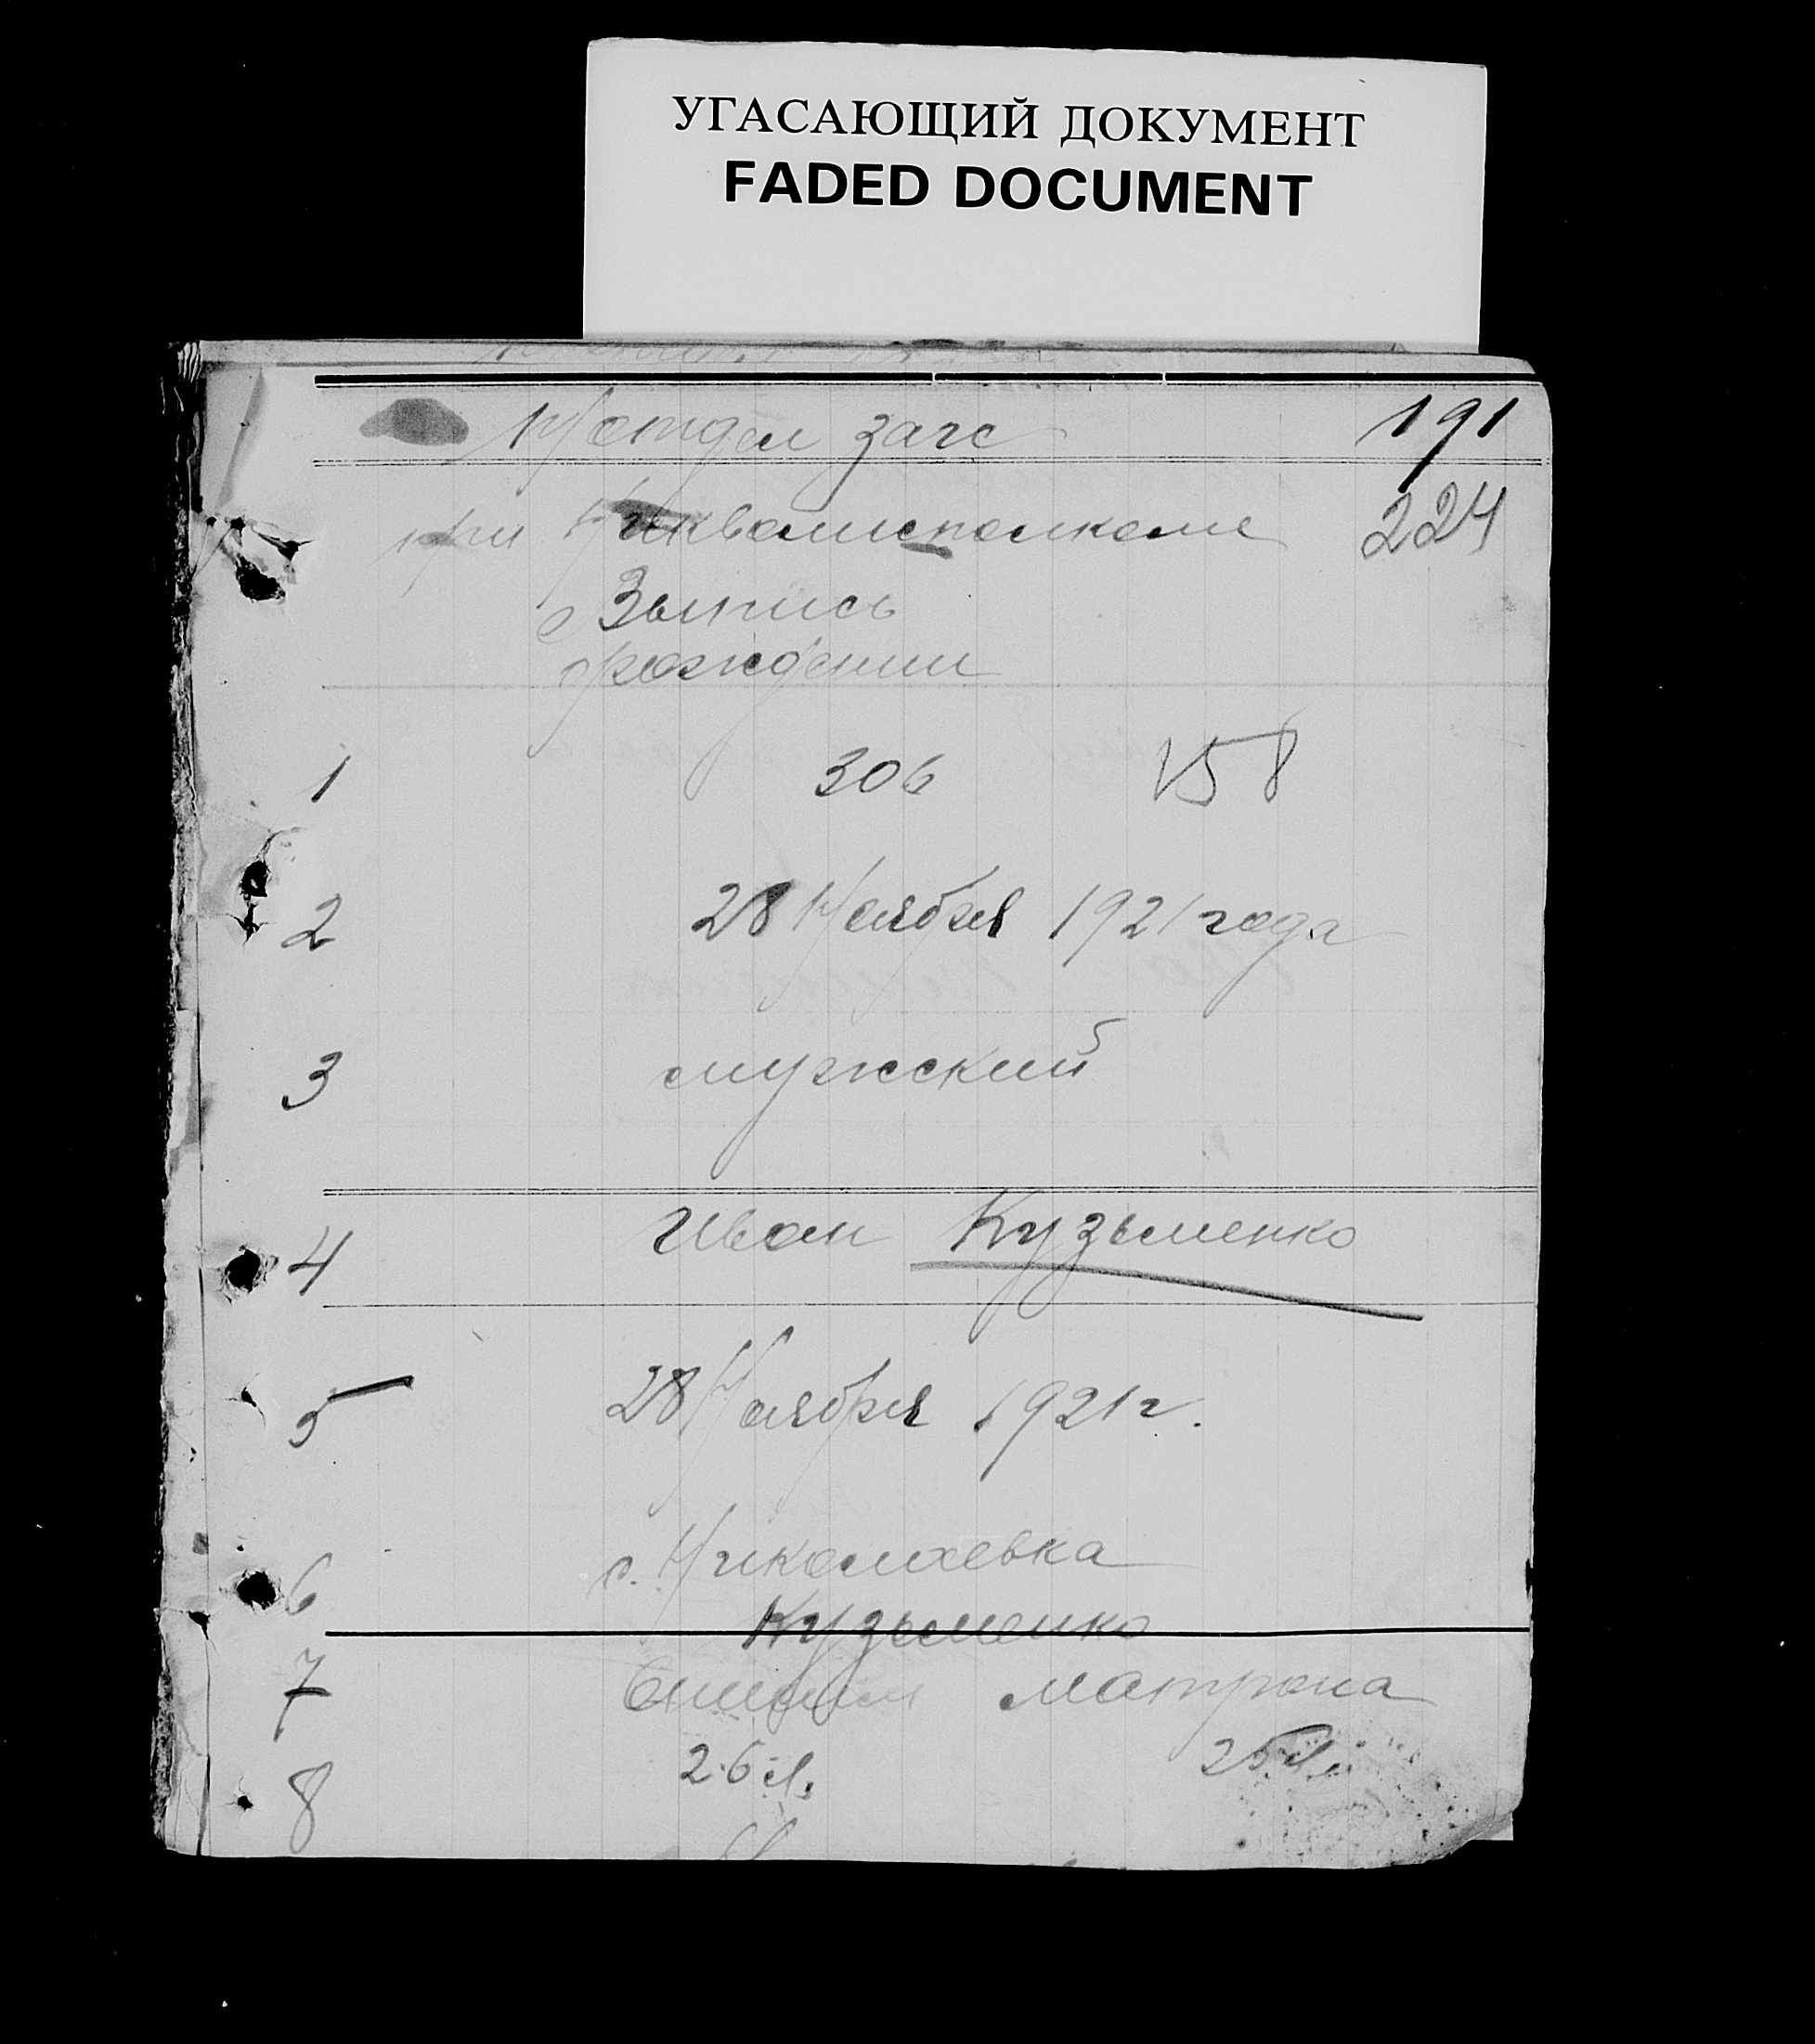 УГАСАЮЩИЙ ДОКУМЕНТ
FADED DOCUMENT
П/отдел загс 191
при Никволисполкоме 224
Выпись
о рождении
1 306 158
2 28 Ноября 1921 года
3 мужский
4 Иван Кузьменко
5 28 Ноября 1921 г.
6 с. Николаевка
Кузьменко
7 Матрона
8 26 л. 25 л.